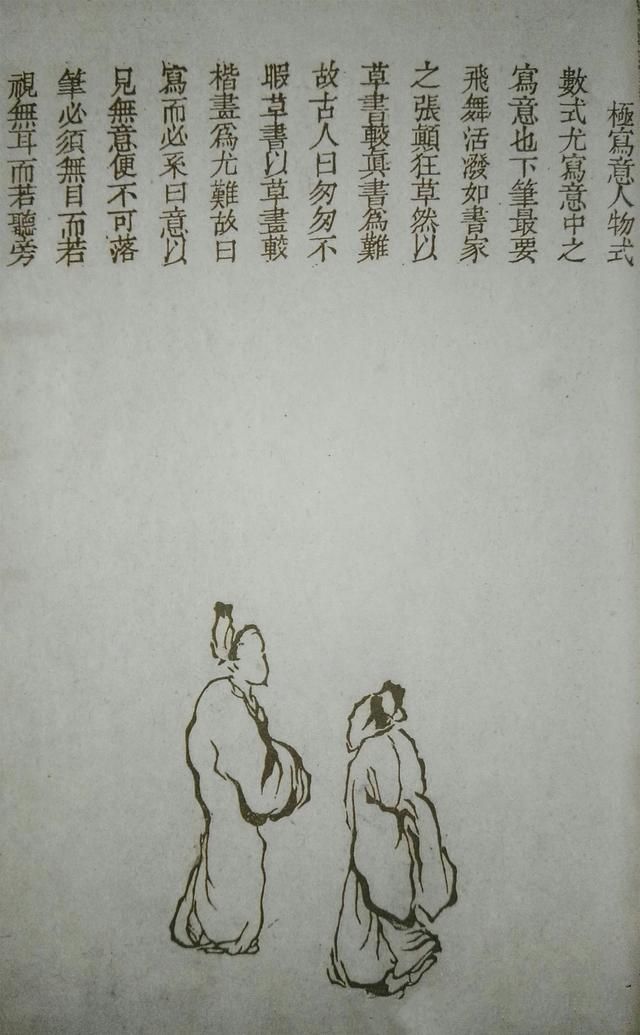 極寫意人物式
數式尤寫意中之
寫意也下筆最要
飛舞活潑如書家
之張顛狂草然以
草書較真書為難
故古人曰匆匆不
暇草書以草畫較
楷畫為尤難故曰
寫而必系曰意以
見無意便不可落
筆必須無目而若
視無耳而若聽旁